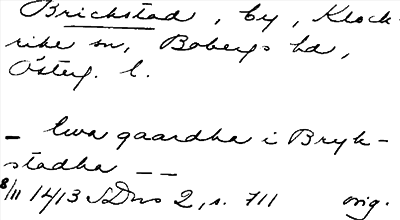 Brickstad, by, Klock-
rike sn, Bobergs hd,
Österg. l.
— twa gaardha i Bryk-
stadha — —
8/11 1413 SDns 2, s. 711 orig.